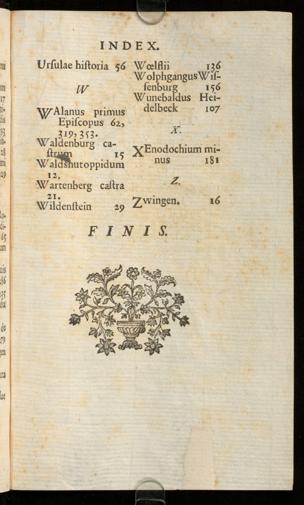 INDEX.
Ursulae historia 56
W
WAlanus primus
Episcopus 62,
319, 353.
Waldenburg ca-
strum 15
Waldshutoppidum
12.
Wartenberg castra
21.
Wildenstein 29
Wœlflii 136
Wolphgangus Wis-
senburg 156
Wunebaldus Hei-
delbeck 107
X.
XEnodochium mi-
nus 181
Z.
Zwingen. 16
FINIS.